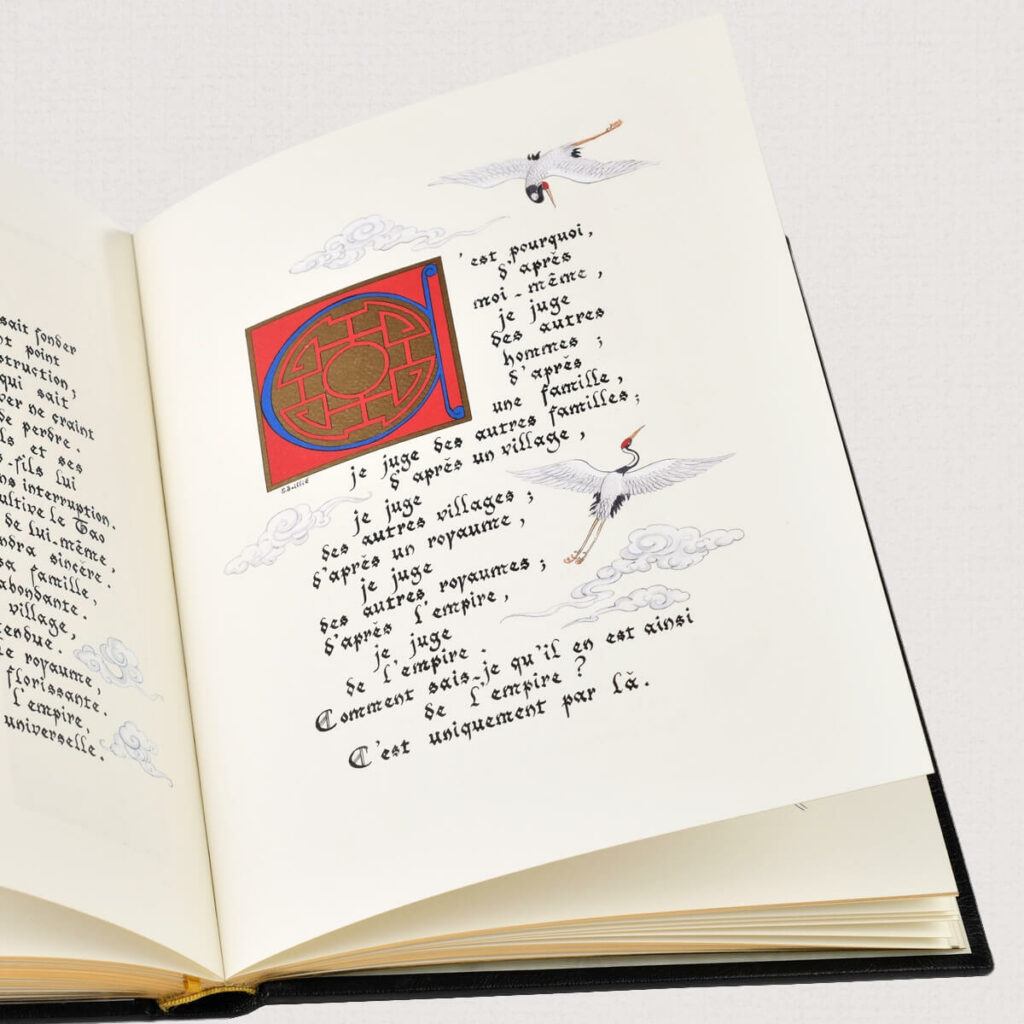 sait fonder
nt point
struction,
qui sait
ver ne craint
de perdre.
ls et ses
s-fils lui
ns interruption.
ultive le Tao
de lui-même,
ndra sincère.
sa famille,
abondante.
village,
endue.
e royaume,
florissante.
l'empire,
universelle.
C'est pourquoi,
d'après
moi-même,
je juge
des autres
hommes ;
d'après
une famille,
je juge des autres familles ;
d'après un village,
je juge
des autres villages ;
d'après un royaume,
je juge
des autres royaumes ;
d'après l'empire,
je juge
de l'empire.
Comment sais-je qu'il en est ainsi
de l'empire ?
C'est uniquement par là.